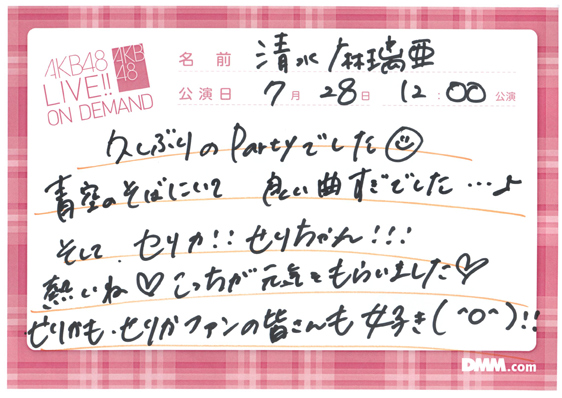 AKB48
LIVE!!
ON DEMAND
AKB
48
名前 清水麻璃亜
公演日 7月28日 12:00公演
久しぶりのPartyでした
青空のそばにいて 良い曲すぎでした…♪
そして、セリカ!! せりちゃん!!!
熱いね♡こっちが元気をもらいました♡
せりかも、せりかファンの皆さんも好き(^o^)!!
DMM.com